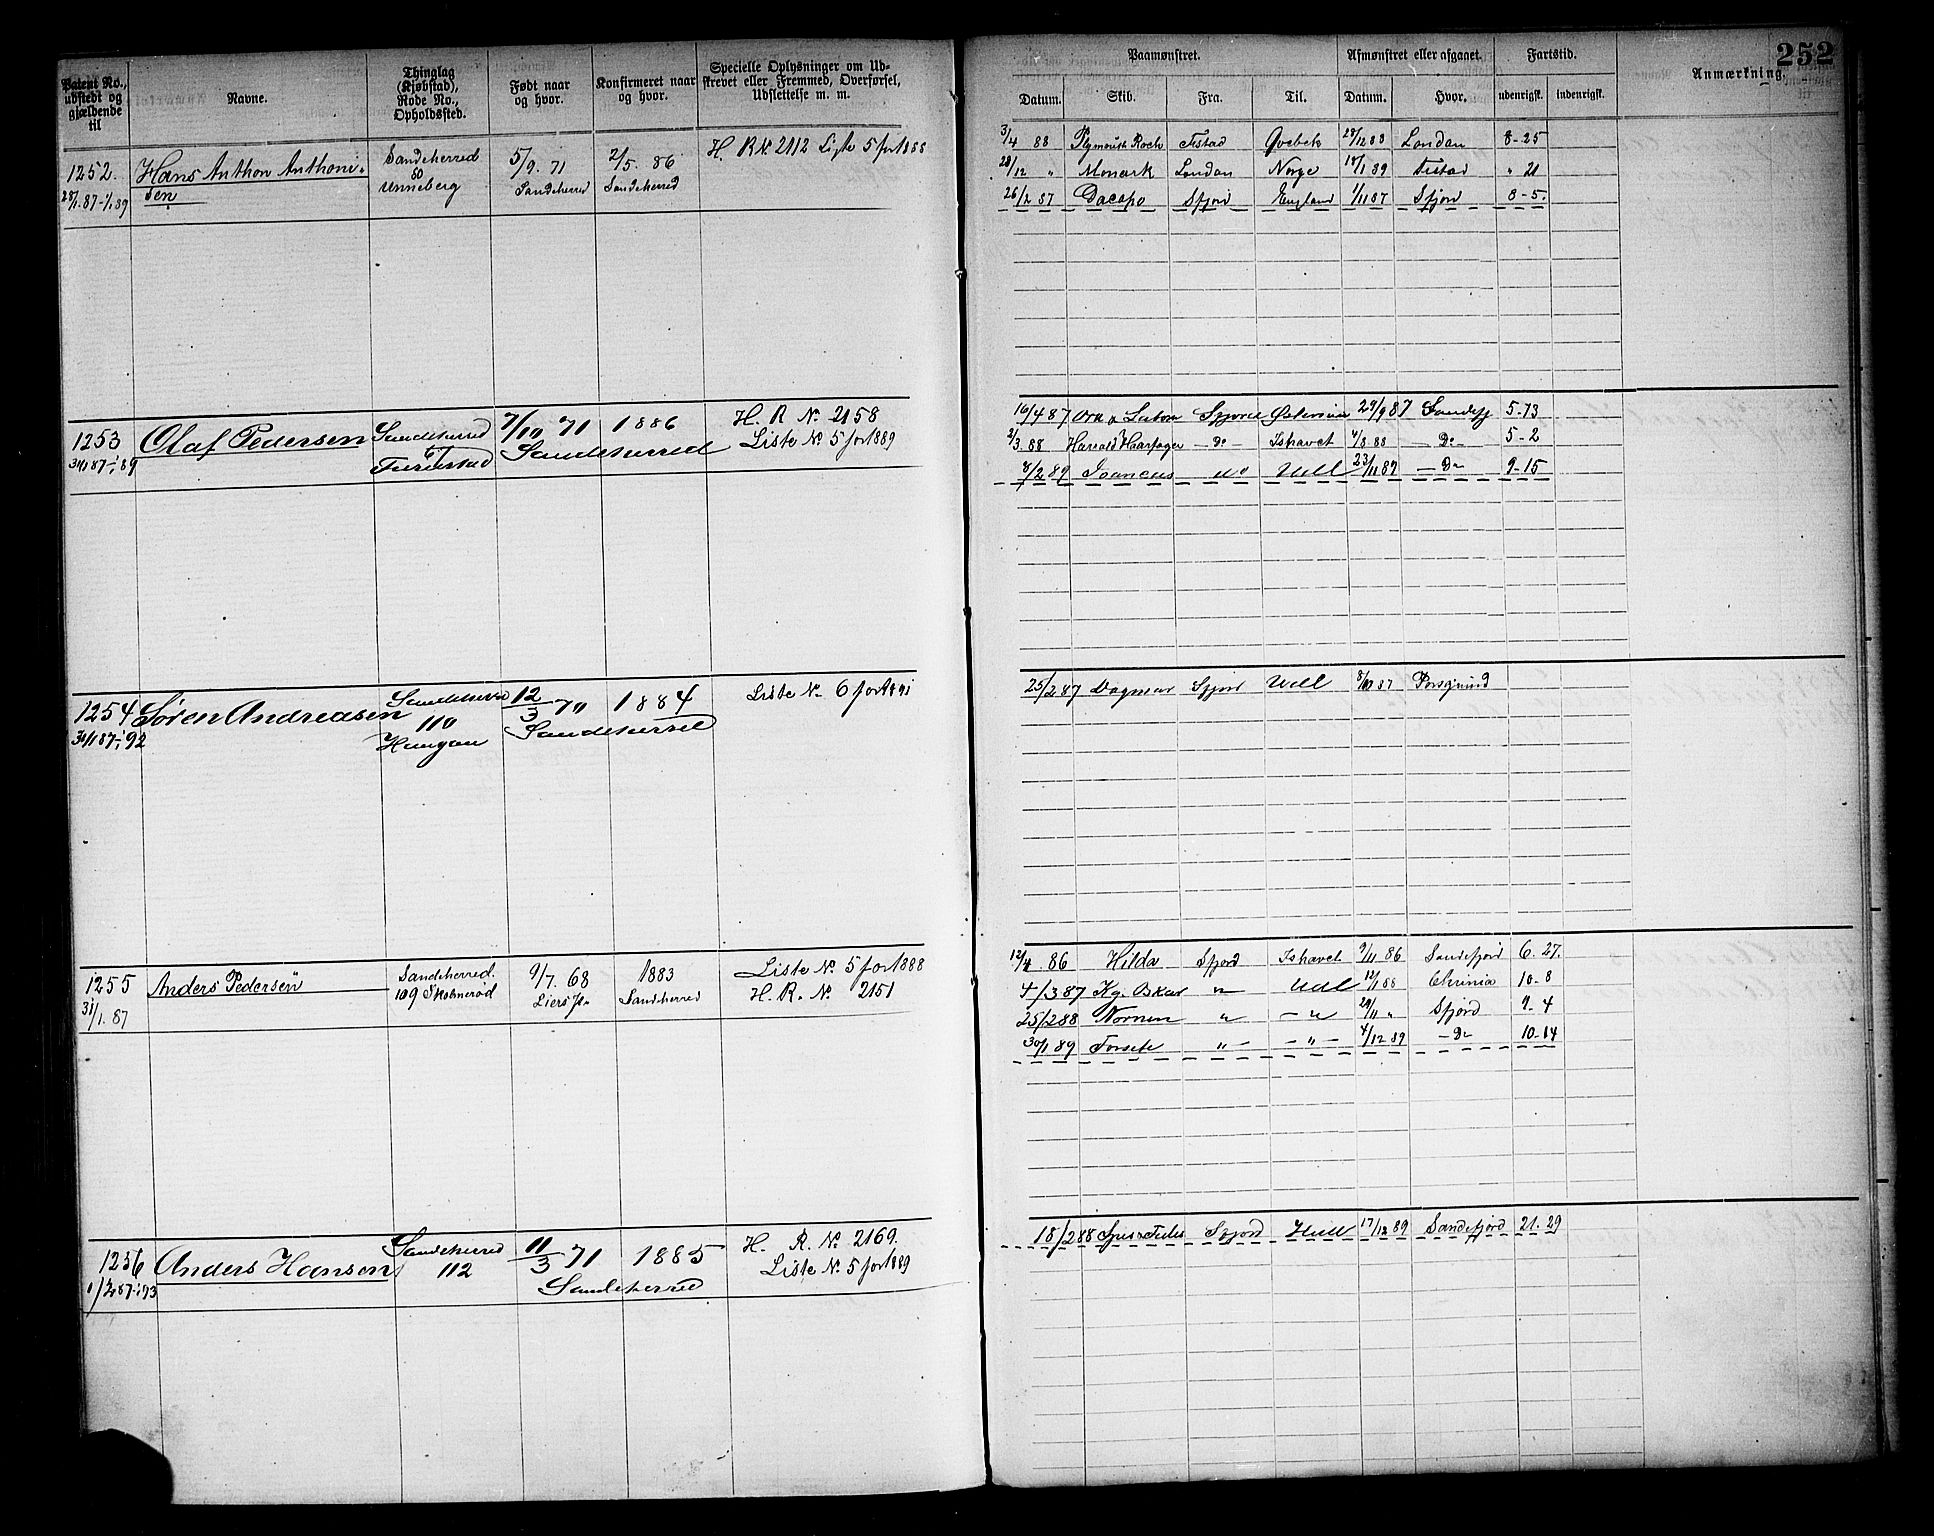 252
Patent No., udstedt og gjældende til
Navne.
Thinglag (Kjøbstad), Rode No., Opholdssted.
Født naar og hvor.
Konfirmeret naar og hvor.
Specielle Oplysninger om Udskrevet eller Fremmed, Overførsel, Udslettelse m. m.
Paamønstret.
Afmønstret eller afgaaet.
Fartstid.
Anmærkning.
Datum. Skib. Fra. Til. Datum. Hvor. udenrigsk. indenrigsk.
1252. Hans Anthon Anthoni- Sandeherred 5/9. 71 2/5. 86 H. R No. 2112 Liste 5 for 1888
28/1.87-1/1 89 sen 50 Unneberg Sandeherred Sandeherred
3/4 88 Plymouth Rock Qvebek 28/12 88 London 8-25
28/12 " Monark London Norge 18/1 89 " 21
26/2 87 Dacapo Sfjord England 1/11 87 Sfjord 8-5.
1253 Olaf Pedersen Sandeherred 7/10 71 1886 H. R No. 2158
67 Sandeherred Liste No. 5 for 1889
16/4 87 Sfjord 29/9 87 Sandefj 5-13
2/3 88 Harald Haarfager - Do - Ishavet 4/8 88 - Do - 5-2
8/2 89 Do Udl 23/11 89 - Do 9-15
1254 Søren Andreasen Sandeherred 12/3 70 1884 Liste No. 6 for 1891
31/1 87-1/1 92 110 Haugan Sandeherred
25/2 87 Dagmar Sfjord Udl 87 Porsgrund
1255 Anders Pedersen Sandeherred. 9/7. 68 1883 Liste No. 5 for 1888
31/1. 87 109 Skolmerød Sandeherred H. R. No. 2151
12/4 86 Hilda Sfjord Ishavet 9/11 86 Sandefjord 6. 27.
4/3 87 Kg. Oskar " Udl 12/1 88 Chrinia 10-8
25/2 88 Nornen " - " 29/11 " Sfjord 9-4
30/1 89 Forsete " - - " - 4/12 89 - Do 10-14
1256 Anders Hansen Sandeherred 11/3 71 1885 H. R. No. 2169.
1/2 87-1/1 93 112 Sandeherred Liste No. 5 for 1889
18/2 88 Sfjord Udl 17/12 89 Sandefjord 21. 29